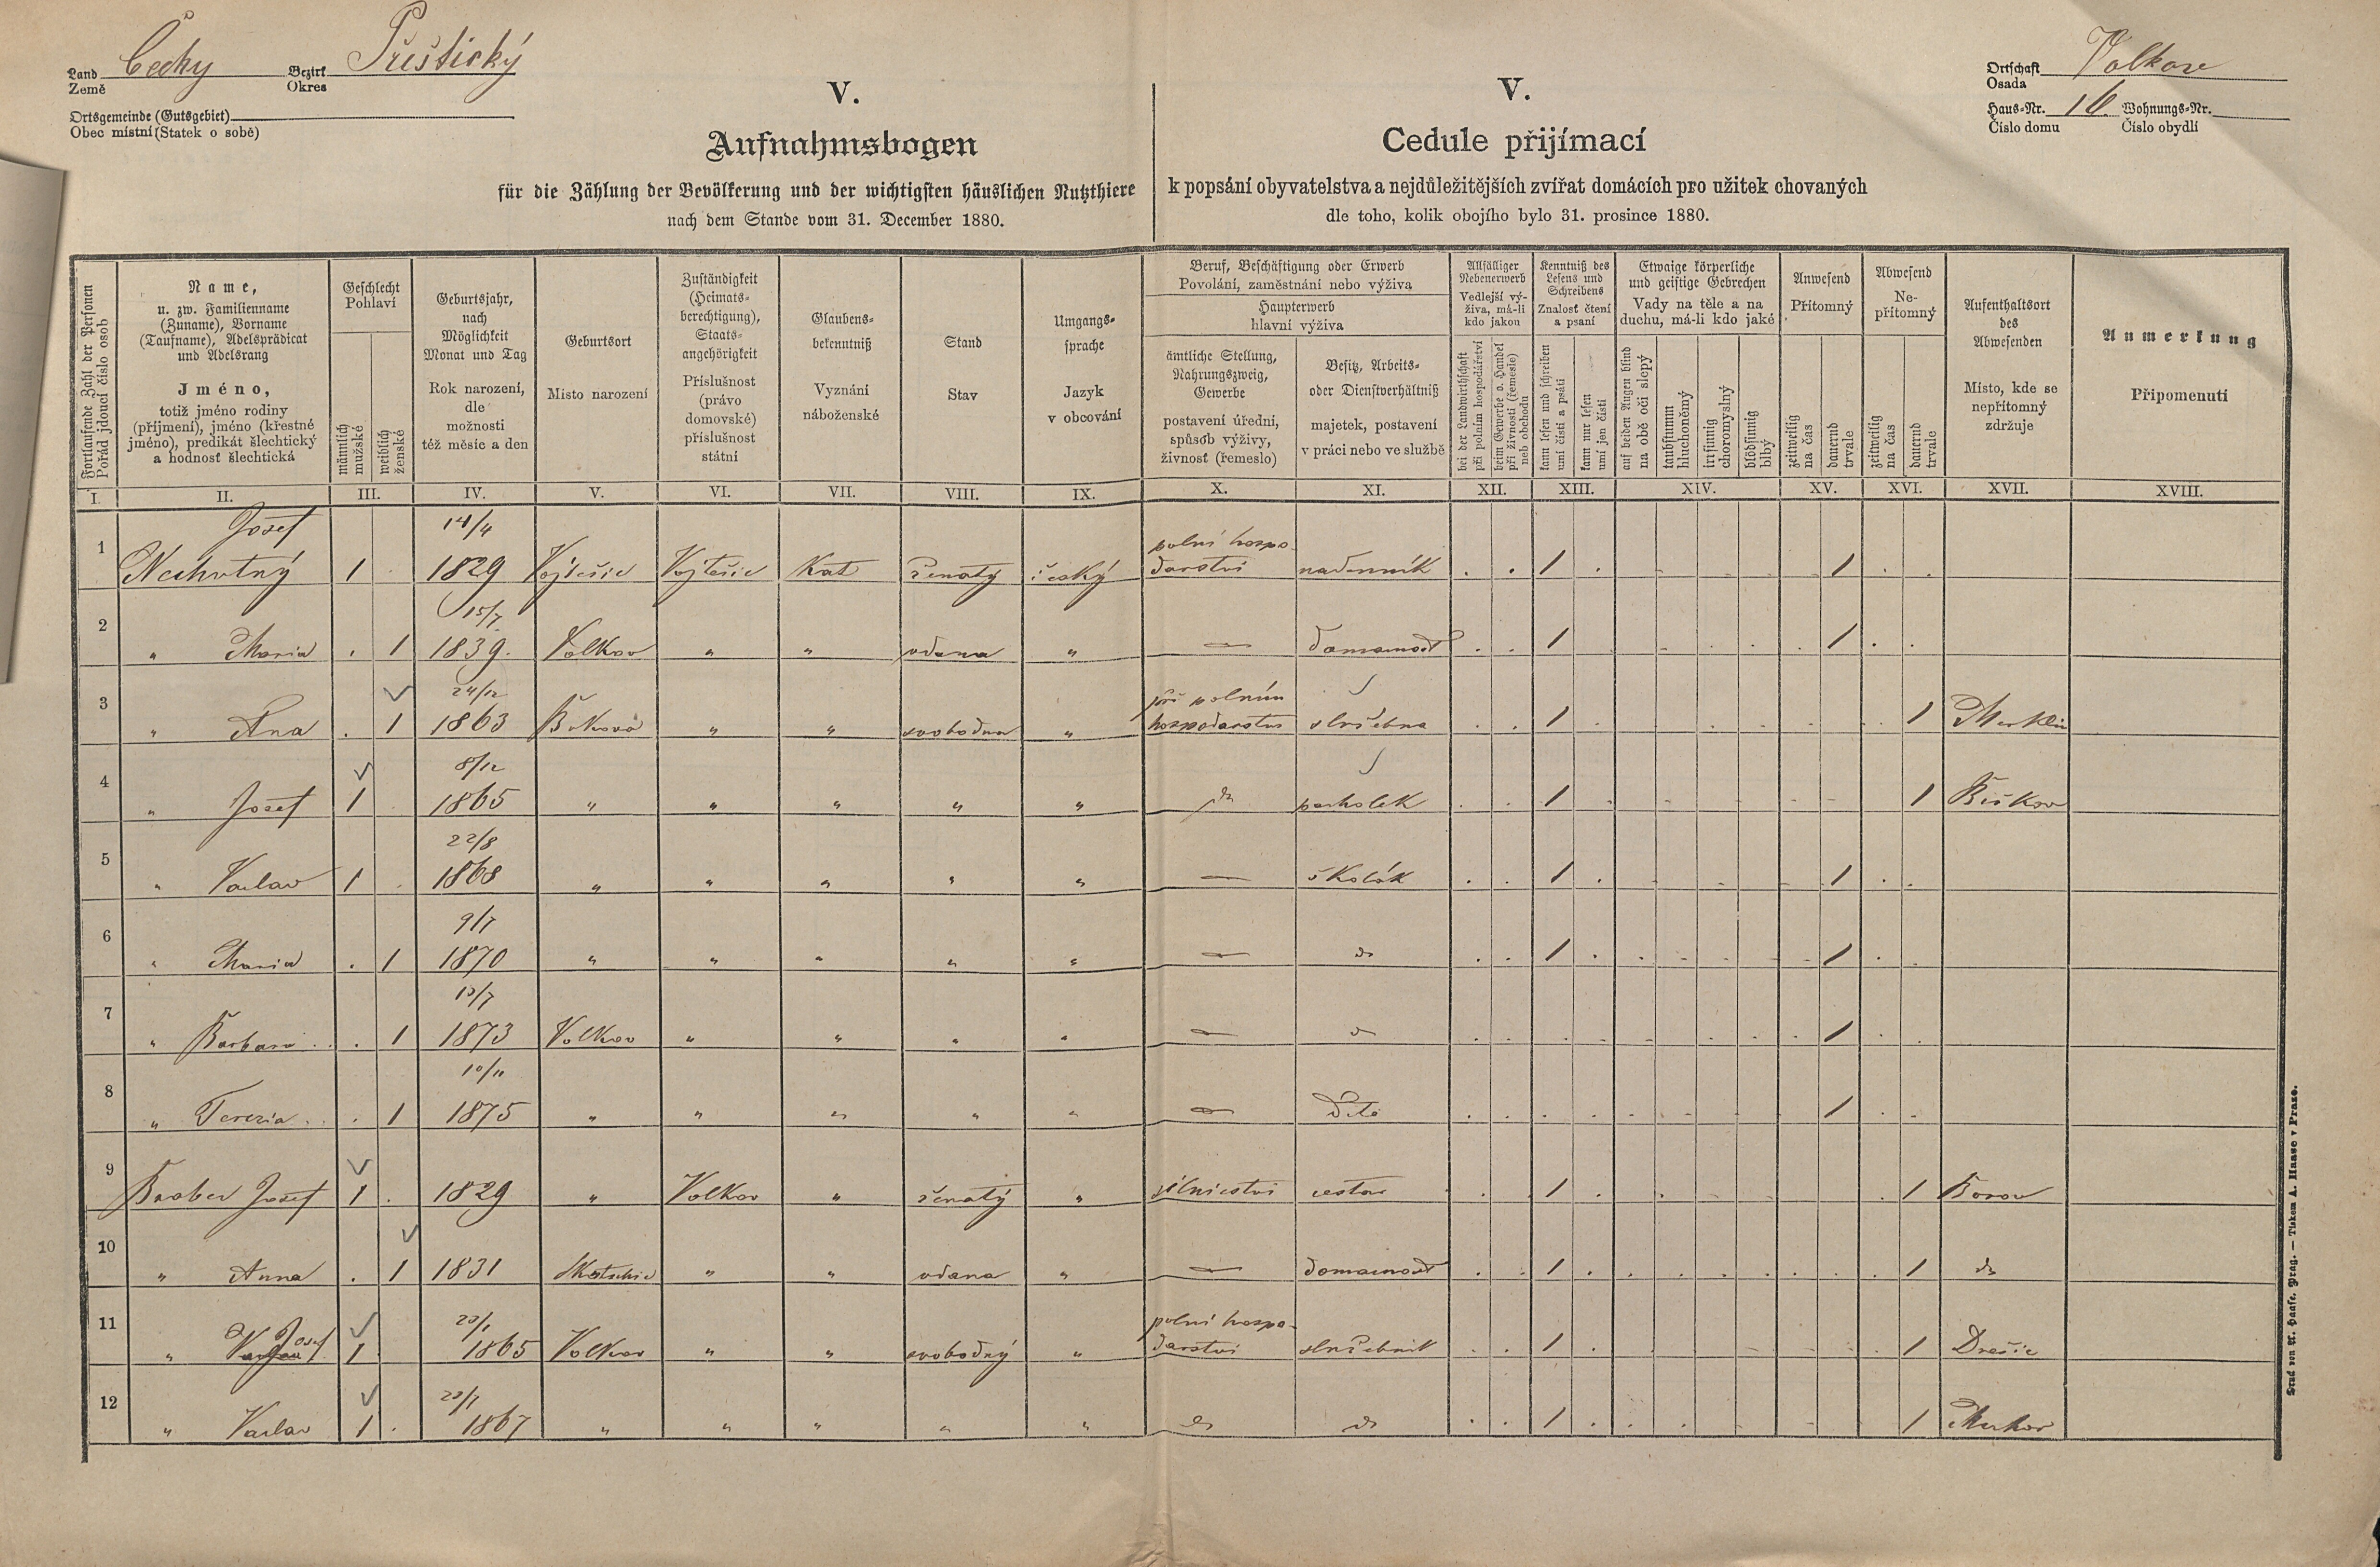 Land Čechy Bezirk Přeštický
Země Okres
Ortsgemeinde (Gutsgebiet)
Obec místní (Statek o sobě)
Ortschaft Volkov
Osada
Haus-Nr. 16. Wohnungs-Nr.
Číslo domu Číslo obydlí
V.
Aufnahmsbogen
für die Zählung der Bevölkerung und der wichtigsten häuslichen Nutzthiere
nach dem Stande vom 31. December 1880.
V.
Cedule přijímací
k popsání obyvatelstva a nejdůležitějších zvířat domácích pro užitek chovaných
dle toho, kolik obojího bylo 31. prosince 1880.
Fortlaufende Zahl der Personen
Pořád jdoucí číslo osob
Name,
u. zw. Familienname
(Zuname), Vorname
(Taufname), Adelsprädicat
und Adelsrang
Jméno,
totiž jméno rodiny
(příjmení), jméno (křestné
jméno), predikát šlechtický
a hodnosť šlechtická
Geschlecht
Pohlaví
männlich
mužské
weiblich
ženské
Geburtsjahr,
nach
Möglichkeit
Monat und Tag
Rok narození,
dle
možnosti
též měsíc a den
Geburtsort
Místo narození
Zuständigkeit
(Heimats-
berechtigung),
Staats-
angehörigkeit
Příslušnost
(právo
domovské)
příslušnost
státní
Glaubens-
bekenntniß
Vyznání
náboženské
Stand
Stav
Umgangs-
sprache
Jazyk
v obcování
Beruf, Beschäftigung oder Erwerb
Povolání, zaměstnání nebo výživa
Haupterwerb
hlavní výživa
ämtliche Stellung,
Nahrungszweig,
Gewerbe
postavení úřední,
spůsob výživy,
živnosť (řemeslo)
Besitz, Arbeits-
oder Dienstverhältniß
majetek, postavení
v práci nebo ve službě
Allfälliger
Nebenerwerb
Vedlejší vý-
živa, má-li
kdo jakou
bei der Landwirthschaft
při polním hospodářství
beim Gewerbe o. Handel
při živnosti (řemesle)
neb obchodu
Kenntniß des
Lesens und
Schreibens
Znalosť čtení
a psaní
kann lesen und schreiben
umí čísti a psáti
kann nur lesen
umí jen čísti
Etwaige körperliche
und geistige Gebrechen
Vady na těle a na
duchu, má-li kdo jaké
auf beiden Augen blind
na obě oči slepý
taubstumm
hluchoněmý
irrsinnig
choromyslný
blödsinnig
blbý
Anwesend
Přítomný
zeitweilig
na čas
dauernd
trvale
Abwesend
Ne-
přítomný
zeitweilig
na čas
dauernd
trvale
Aufenthaltsort
des
Abwesenden
Místo, kde se
nepřítomný
zdržuje
Anmerkung
Připomenutí
I. II. III. IV. V. VI. VII. VIII. IX. X. XI. XII. XIII. XIV. XV. XVI. XVII. XVIII.
Josef 14/4 polní hospo-
1 Nechutný 1 1829 Vojtěšic Vojtěšic Kat ženatý český darství nadenník 1 1
15/7
2 " Maria 1 1839. Volkov " " vdana " — domacnost 1 1
24/12 při polním
3 " Ana 1 1863 " " svobodna " hospodarstvi služebna 1 1 Merklín
8/12
4 " Josef 1 1865 " " " " " do pacholek 1 1 Biškov
22/8
5 " Vaclav 1 1868 " " " " " — školák 1 1
9/7
6 " Maria 1 1870 " " " " " — do 1 1
10/7
7 " Barbara 1 1873 Volkov " " " " — do 1
10/11
8 " Terezia 1 1875 " " " " " — Dítě 1
9 Josef 1 1829 " Volkov " ženatý " silnictvi cestar 1 1 Borov
10 " Anna 1 1831 " " vdana " — domacnost 1 1 do
20/1 polní hospo-
11 " Josef 1 1865 Volkov " " svobodný " darství služebník 1 1
12 " Vaclav 1 1867 " " " " " do do 1 1
Druck von A. Haase, Prag. — Tiskem A. Haase v Praze.